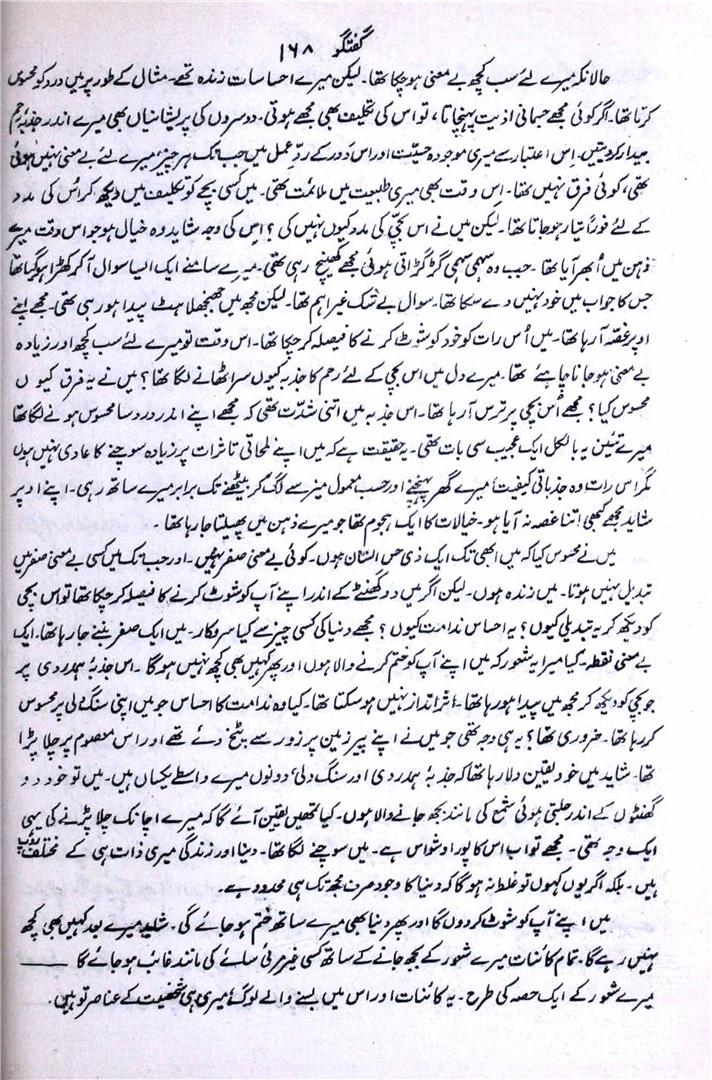 گفتگو ۱۶۸
حالانکہ میرے لئے سب کچھ بے معنی ہو چکا تھا۔ لیکن میرے احساسات زندہ تھے۔ مثال کے طور پر میں درد کو محسوس
کرتا تھا۔ اگر کوئی مجھے جسمانی اذیت پہنچاتا، تو اس کی تکلیف بھی مجھے ہوتی۔ دوسروں کی پریشانیاں بھی میرے اندر جذبۂ رحم
بیدار کر دیتیں۔ اس اعتبار سے میری موجودہ حسیّت اور اس دَور کے ردِّ عمل میں جب تک ہر چیز میرے لئے بے معنی نہیں ہوئی
تھی، کوئی فرق نہیں تھا۔ اس وقت بھی میری طبیعت میں ملائمت تھی۔ میں کسی بچے کو تکلیف میں دیکھ کر اُس کی مدد
کے لئے فوراً تیار ہو جاتا تھا۔ لیکن میں نے اس بچّی کی مدد کیوں نہیں کی؟ اس کی وجہ شاید وہ خیال ہو جو اس وقت میرے
ذہن میں اُبھر آیا تھا۔ جب وہ سہمی سہمی گڑگڑاتی ہوئی مجھے کھینچ رہی تھی۔ میرے سامنے ایک ایسا سوال آ کر کھڑا ہو گیا تھا
جس کا جواب میں خود نہیں دے سکا تھا۔ سوال بے شک غیر اہم تھا۔ لیکن مجھ میں جھنجھلاہٹ پیدا ہو رہی تھی۔ مجھے اپنے
اوپر غصّہ آ رہا تھا۔ میں اُس رات کو خود کو شوٹ کرنے کا فیصلہ کر چکا تھا۔ اس وقت تو میرے لئے سب کچھ اور زیادہ
بے معنی ہو جانا چاہئے تھا۔ میرے دل میں اس بچّی کے لئے رحم کا جذبہ کیوں سر اٹھانے لگا تھا؟ میں نے یہ فرق کیوں
محسوس کیا؟ مجھے اُس بچّی پر ترس آ رہا تھا۔ اس جذبہ میں اتنی شدّت تھی کہ مجھے اپنے اندر درد سا محسوس ہونے لگا تھا
میرے تئیں یہ بالکل ایک عجیب سی بات تھی۔ یہ حقیقت ہے کہ میں اپنے لمحاتی تاثرات پر زیادہ سوچنے کا عادی نہیں ہوں
مگر اس رات وہ جذباتی کیفیت میرے گھر پہنچنے اور حسب معمول میز سے لگ کر بیٹھنے تک برابر میرے ساتھ رہی۔ اپنے اوپر
شاید مجھے کبھی اتنا غصہ نہ آیا ہو۔ خیالات کا ایک ہجوم تھا جو میرے ذہن میں پھیلتا جا رہا تھا۔
میں نے محسوس کیا کہ میں ابھی تک ایک ذی حس انسان ہوں۔ کوئی بے معنی صفر نہیں۔ اور جب تک میں کسی بے معنی صفر میں
تبدیل نہیں ہوتا۔ میں زندہ ہوں۔ لیکن اگر میں دو گھنٹے کے اندر اپنے آپ کو شوٹ کرنے کا فیصلہ کر چکا تھا تو اس بچی
کو دیکھ کر یہ تبدیلی کیوں؟ یہ احساس ندامت کیوں؟ مجھے دنیا کی کسی چیز سے کیا سروکار۔ میں ایک صفر بننے جا رہا تھا۔ ایک
بے معنی نقطہ۔ کیا میرا یہ شعور کہ میں اپنے آپ کو ختم کرنے والا ہوں اور پھر کہیں بھی کچھ نہیں ہو گا۔ اس جذبۂ ہمدردی پر
جو بچی کو دیکھ کر مجھ میں پیدا ہو رہا تھا۔ اثر انداز نہیں ہو سکتا تھا۔ کیا وہ ندامت کا احساس جو میں اپنی سنگدلی پر محسوس
کر رہا تھا۔ ضروری تھا؟ یہ ہی وجہ تھی جو میں نے اپنے پیر زمین پر زور سے پٹخ دئے تھے اور اس معصوم پر چلّا پڑا
تھا۔ شاید میں خود یقین دلا رہا تھا کہ جذبۂ ہمدردی اور سنگ دلی دونوں میرے واسطے یکساں ہیں۔ میں تو خود دو
گھنٹوں کے اندر جلتی ہوئی شمع کی مانند بجھ جانے والا ہوں۔ کیا تمھیں یقین آئے گا کہ میرے اچانک چلّا پڑنے کی یہی
ایک وجہ تھی۔ مجھے تو اب اس کا پورا وشواس ہے۔ میں سوچنے لگا تھا۔ دنیا اور زندگی میری ذات ہی کے مختلف روپ
ہیں۔ بلکہ اگر یوں کہوں تو غلط نہ ہو گا کہ دنیا کا وجود صرف مجھ تک ہی محدود ہے۔
میں اپنے آپ کو شوٹ کر دوں گا اور پھر دنیا بھی میرے ساتھ ختم ہو جائے گی۔ شاید میرے بعد کہیں بھی کچھ
نہیں رہے گا۔ تمام کائنات میرے شعور کے بجھ جانے کے ساتھ کسی غیر مرئی سائے کی مانند غائب ہو جائے گا ——
میرے شعور کے ایک حصہ کی طرح۔ یہ کائنات اور اس میں بسنے والے لوگ میری ہی شخصیت کے عناصر تو ہیں۔